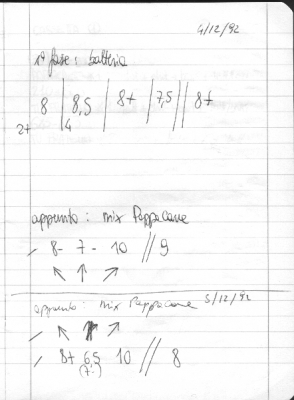 4/12/92
1ª fase: batteria
8 | 8,5 | 8+ | 7,5 || 8+
2+ 4
appunto: mix Pappacane
- 8- 7- 10 // 9
↖ ↑ ↗
appunto: mix Pappacane 5/12/92
- ↖ ↗
- 8+ 6,5 10 // 8
(7-)